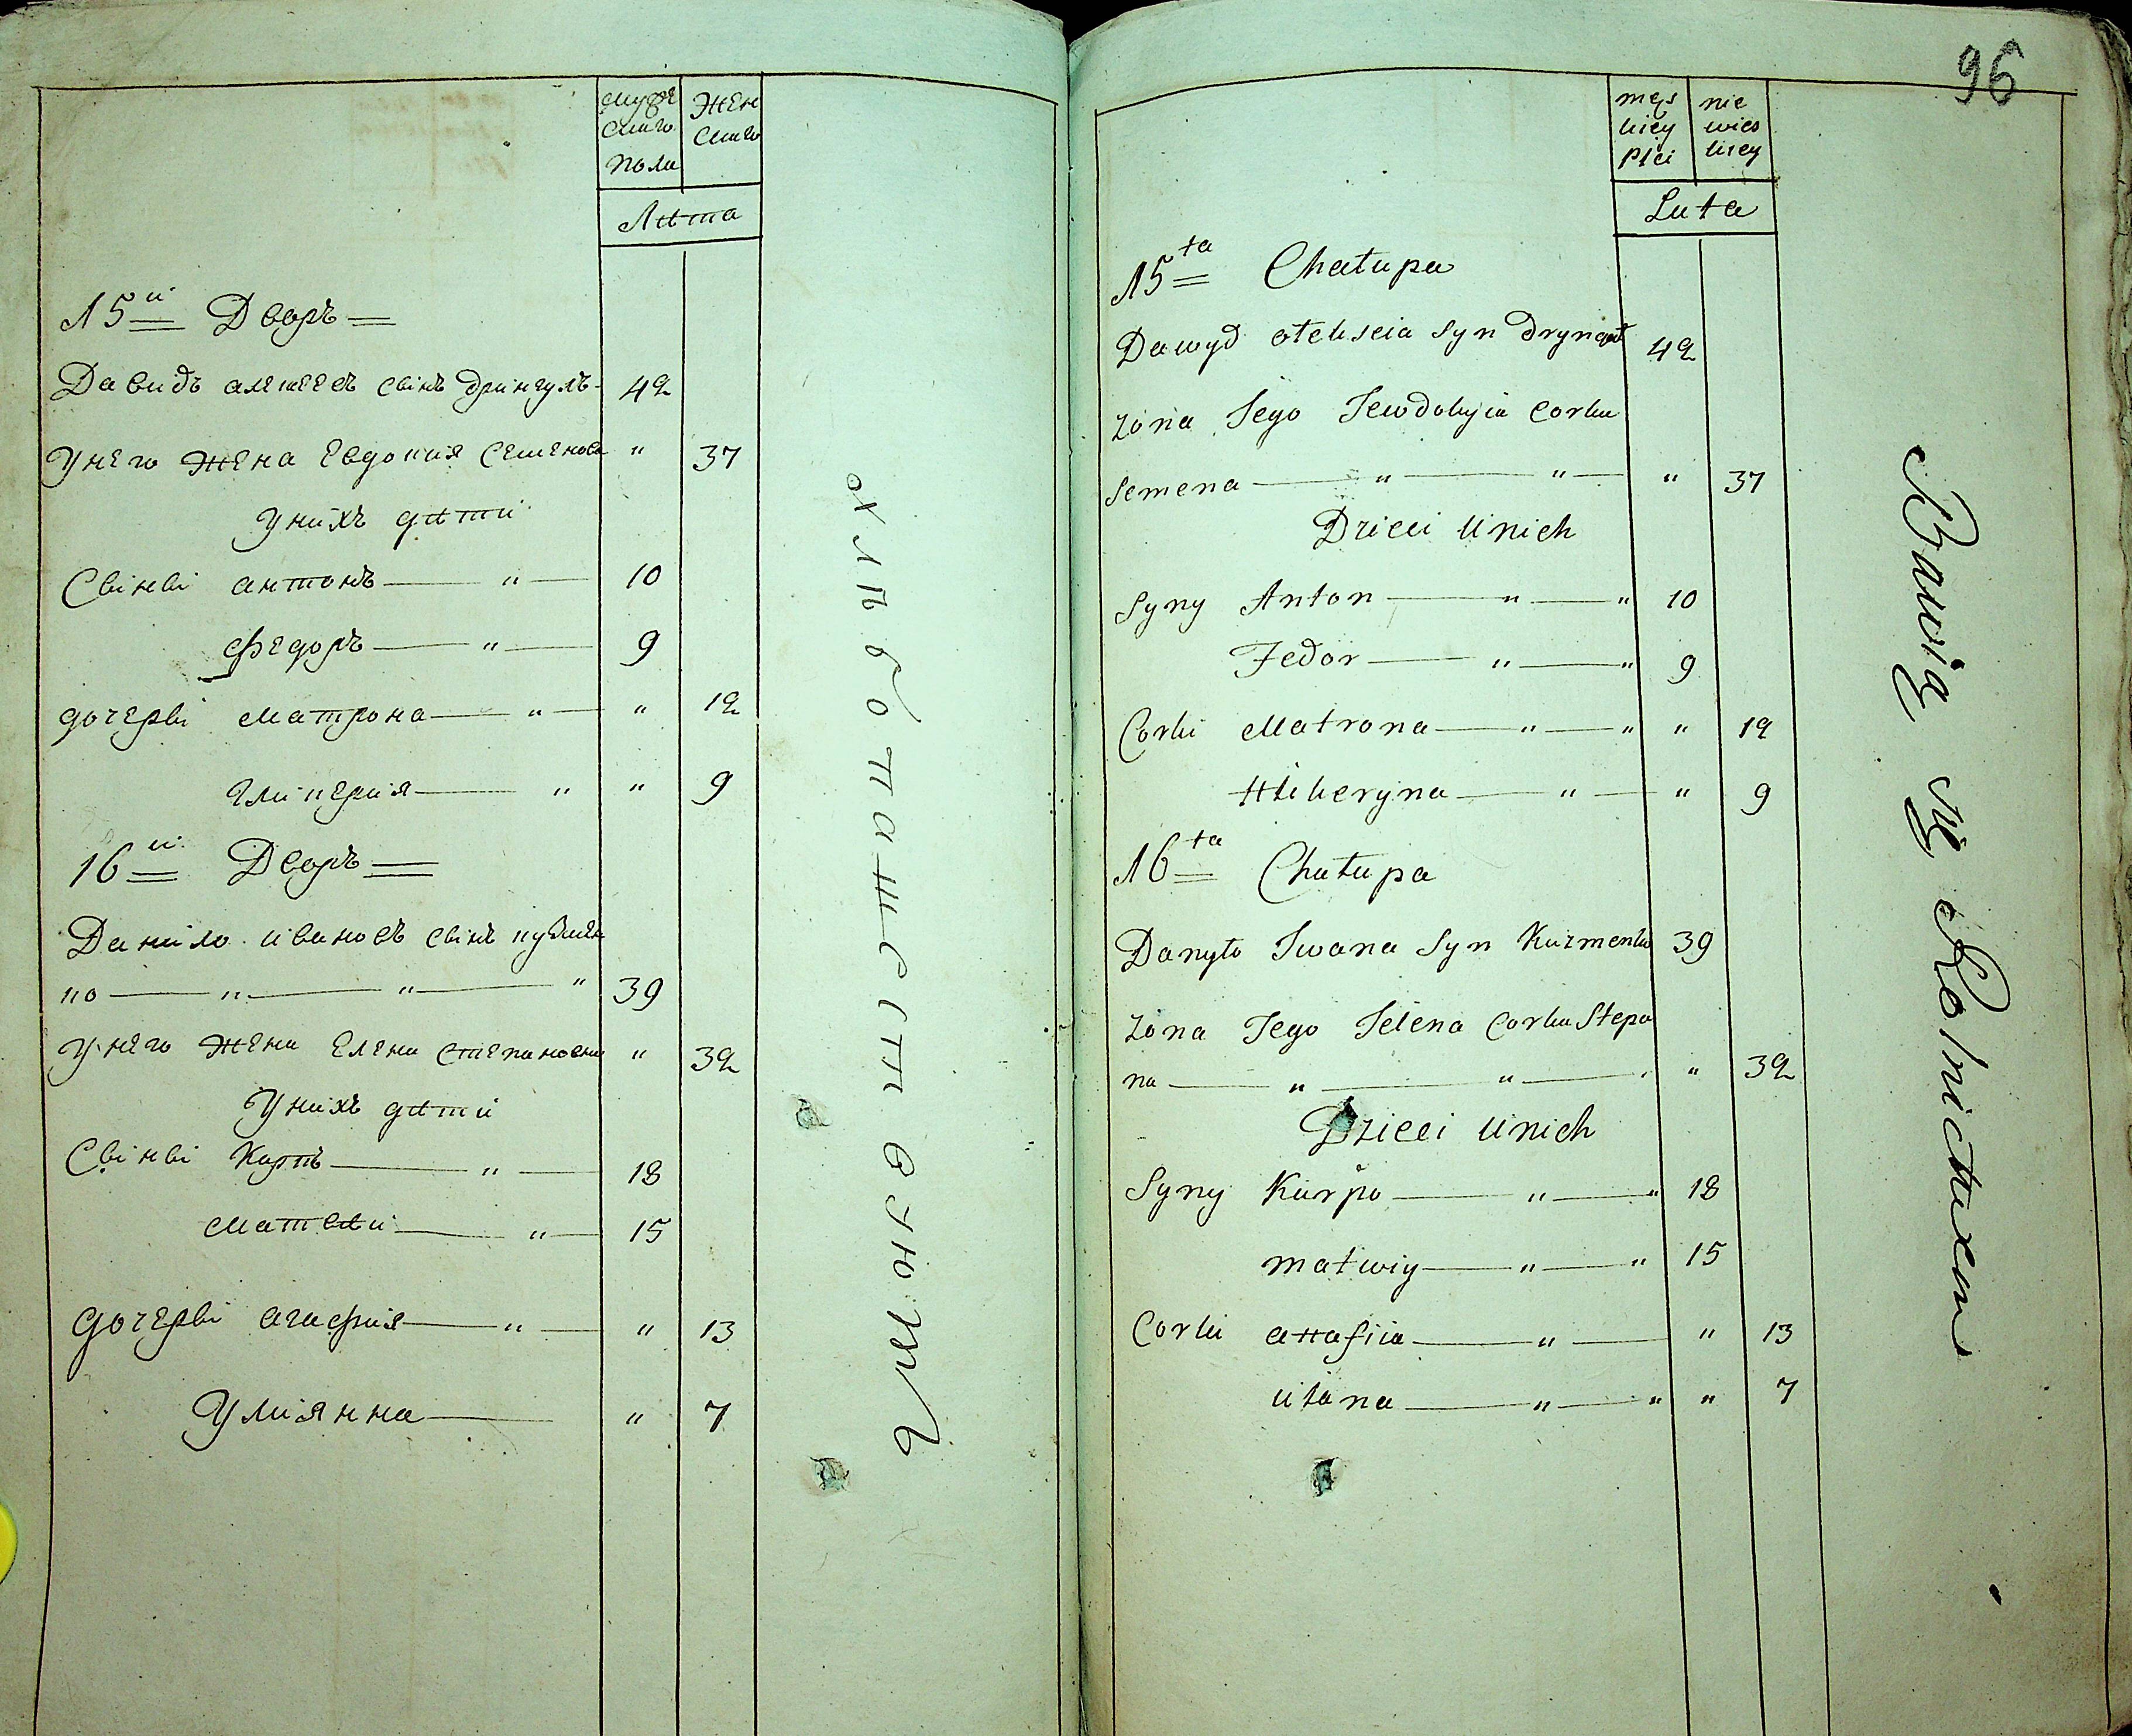 мужескаго пола
женскаго
Лѣта
15й Дворъ
Давидъ алексеевъ сынъ дрингулъ 42
У него жена Евдокия Семенова " 37
У нихъ дѣти
Сыны антонъ " 10
Федоръ " 9
дочеры Матрона " " 12
Гликерия " " 9
16й Дворъ
Данило ивановъ сынъ кузмен
ко " " " 39
У него жена Елена степановна " 32
У нихъ дѣти
Сыны Карпъ " 18
Матвѣи " 15
дочеры агафия " " 13
Улиянна " 7
хлѣбопашествуютъ
96
męs kiey płci
nie wies kiey
Luta
15ta Chałupa
Dawyd ołekseia syn
42
żona Jego Jewdokyia Corka
Semena " " " 37
Dzieci U nich
Syny Anton " " 10
Fedor " " 9
Corki Matrona " " " 12
Hlikeryna " " 9
16ta Chałupa
Danyło Iwana Syn Kuzmenko 39
żona Jego Jelena Corka Stepa
na " " " 32
Dzieci U nich
Syny Karpo " " 18
matwiy " " 15
Corki ahafiia " " 13
ulana " " " 7
Bawią się Rolnictwem